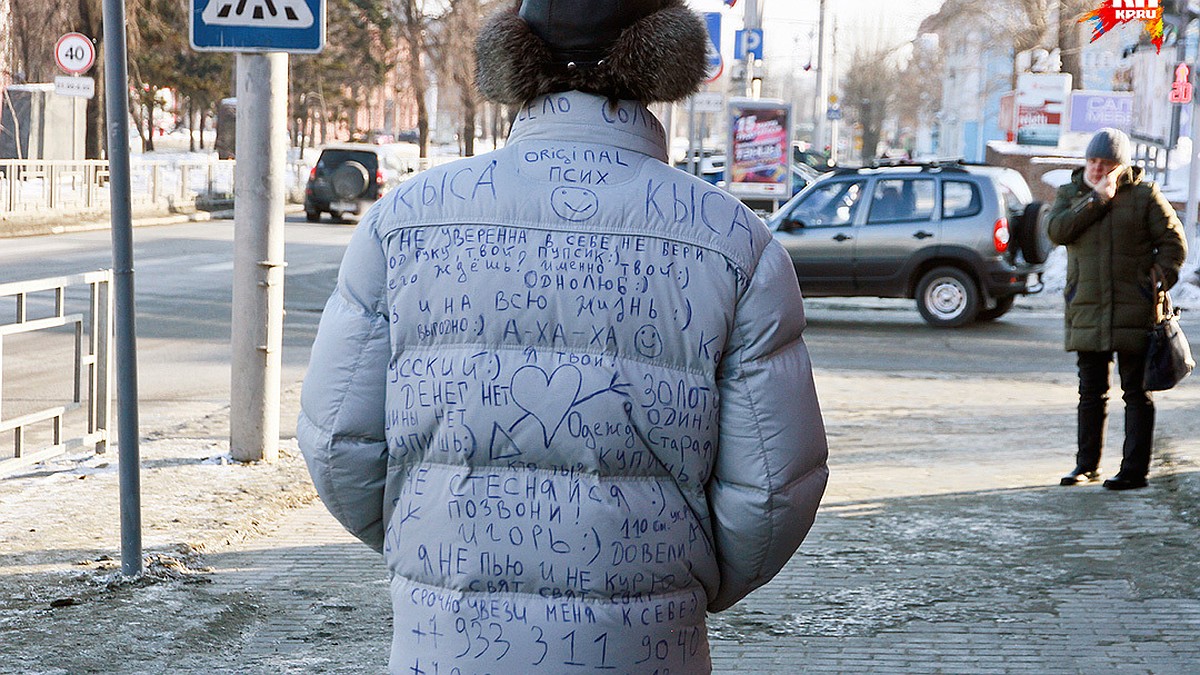 KP.RU
40
ЕЛО СОЛН
ORIGINAL
ПСИХ
КЫСА КЫСА
НЕ УВЕРЕННА В СЕБЕ, НЕ БЕРИ
ОД РУКУ, ТВОЙ ПУПСИК:)
ЕГО ЖДЁШЬ? ИМЕННО ТВОЙ:)
ОДНОЛЮБ:)
З И НА ВСЮ ЖИЗНЬ :)
ВЫГОДНО:) А-ХА-ХА
Я ТВОЙ!
УССКИЙ:)
ДЕНЕГ НЕТ ЗОЛОТ
ИНЫ НЕТ ОДИН!
УПИШЬ:) ОДЕЖДА СТАРАЯ
КУПИШЬ
КТО ТЫ?
НЕ СТЕСНЯЙСЯ :)
ПОЗВОНИ!
ИГОРЬ:) 110 см. УКР
ДОВЕЛИ
Я НЕ ПЬЮ И НЕ КУРЮ
СВЯТ СВЯТ
СРОЧНО УВЕЗИ МЕНЯ К СЕБЕ:)
+7 933 311 9040
P
20